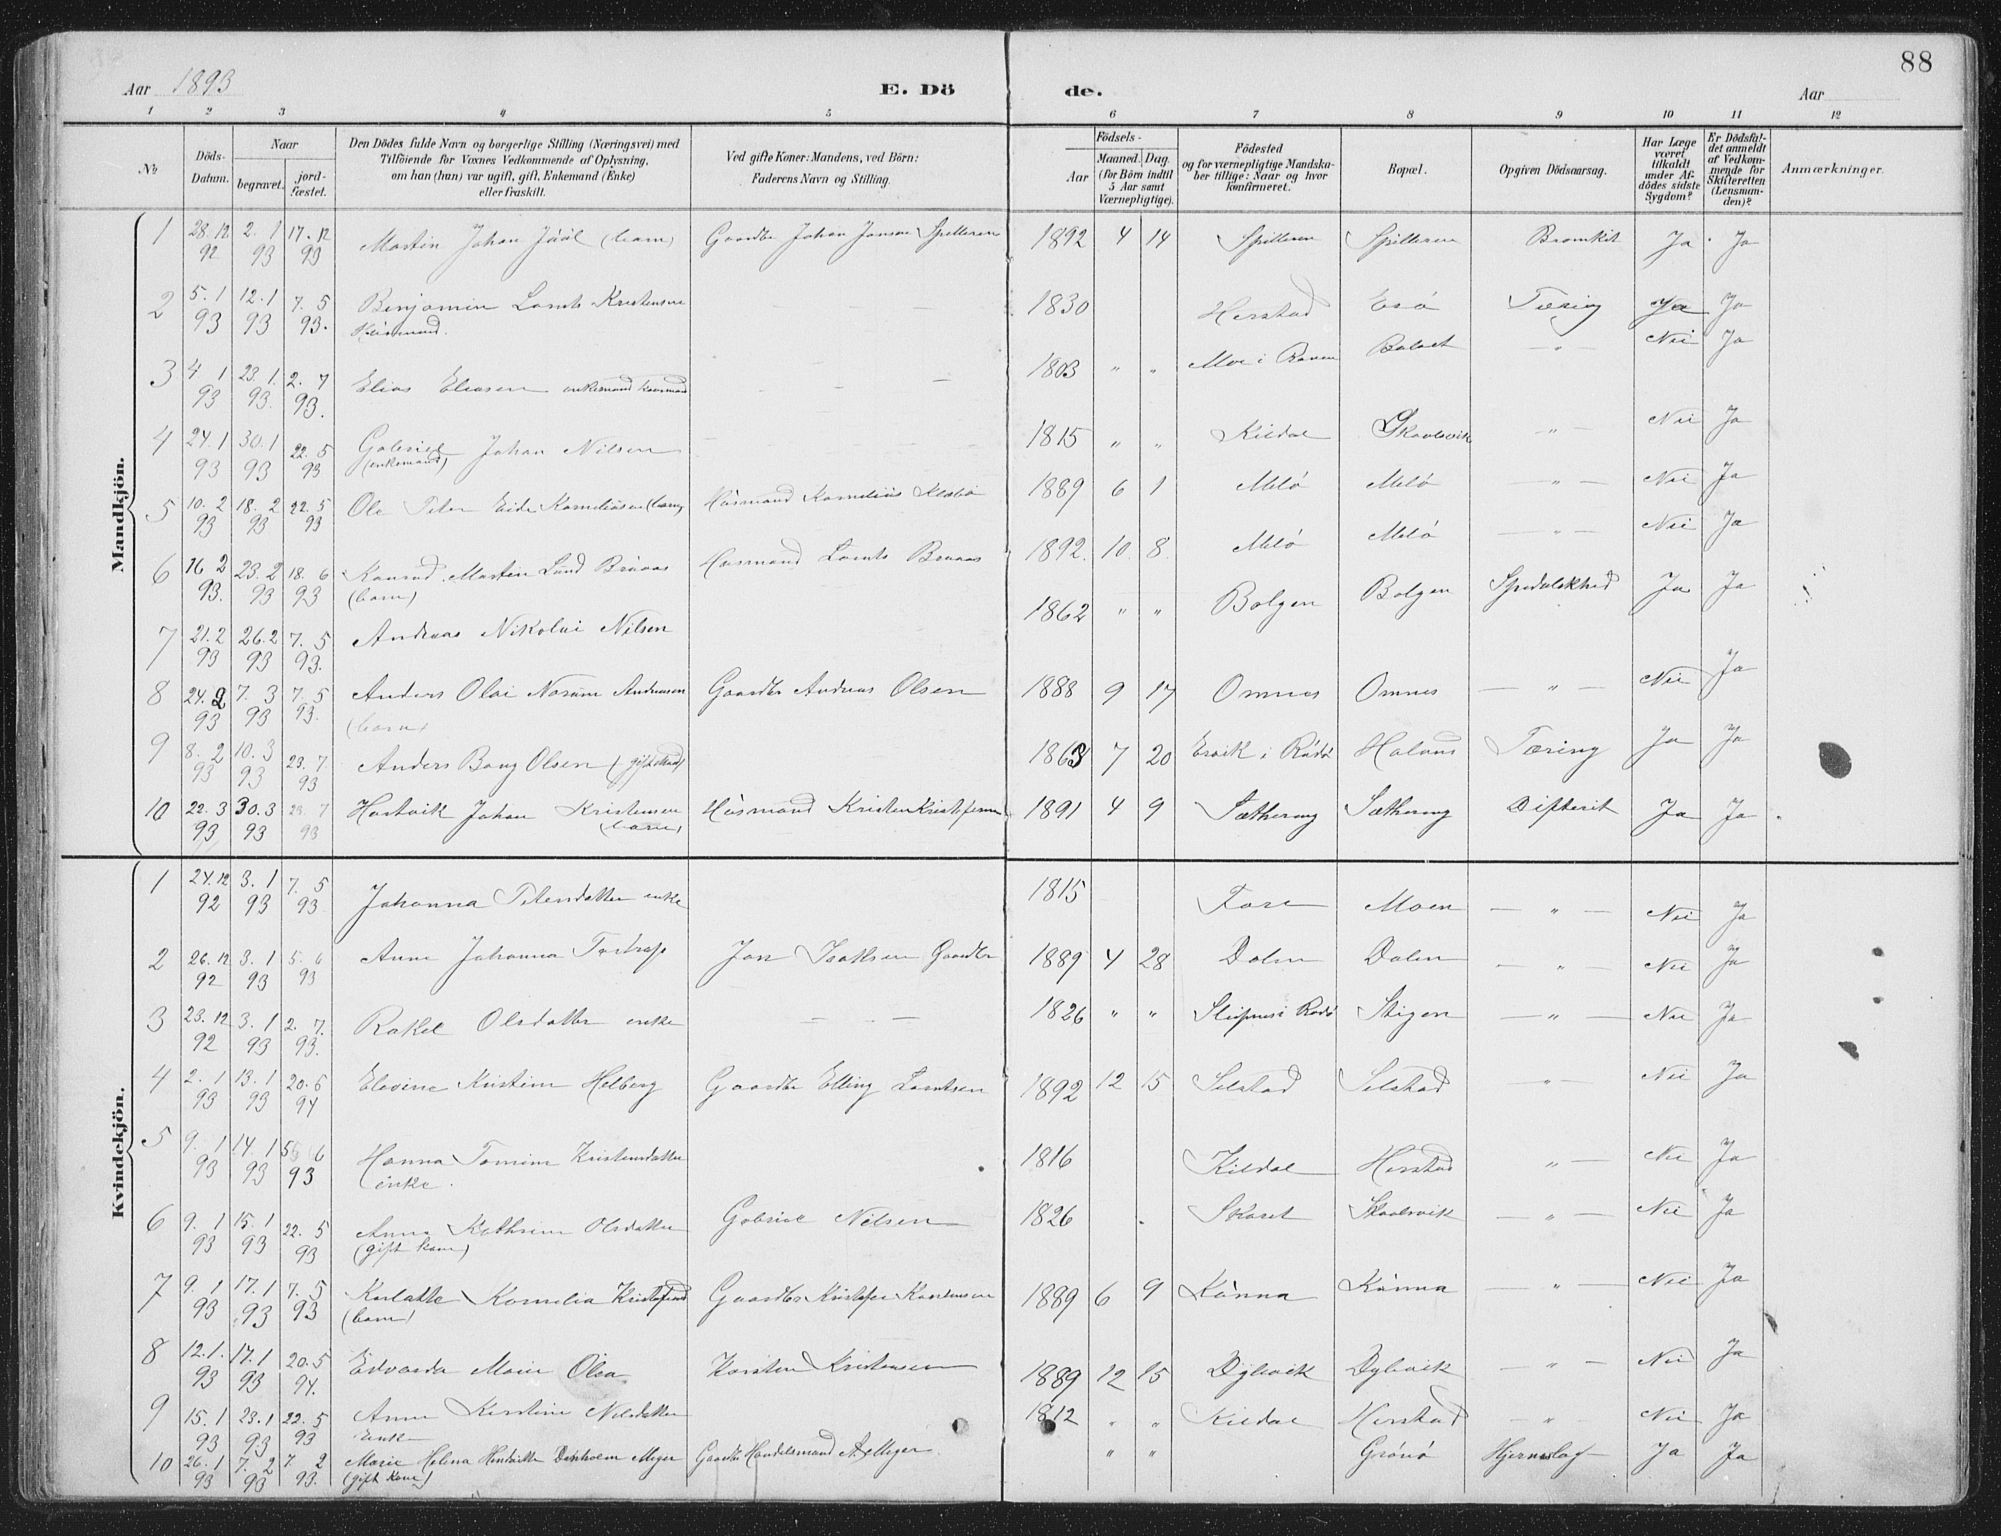 88
Aar 1893 E. Dö de. Aar
1 2 3 4 5 6 7 8 9 10 11 12
№ Döds-Datum. Naar begravet. jord-fæstet. Den Dödes fulde Navn og borgerlige Stilling (Næringsvei) med Tilföiende for Voxnes Vedkommende af Oplysning, om han (hun) var ugift, gift, Enkemand (Enke) eller fraskilt. Ved gifte Koner: Mandens, ved Börn: Faderens Navn og Stilling. Födsels- Aar Maaned. Dag. (for Börn indtil 5 Aar samt Værnepligtige). Födested og for værnepligtige Mandskaber tillige: Naar og hvor konfirmeret. Bopæl. Opgiven Dödsaarsag. Har Læge været tilkaldt under Afdödes sidste Sygdom? Er Dödsfaldet anmeldt af Vedkommende for Skifteretten (Lensmanden)? Anmærkninger.
Mandkjön.
1 28.12 92 2.1 93 17.12 93 Martin Johan Jööl (barn) Gaardbr Johan Jonsen Spilderen 1892 4 14 Spilderen Spilderen Bronkit Ja Ja
2 5.1 93 12.1 93 7.5 93. Benjamin Lornts Kristensen Husmand. — 1830 Herstad Esö Tæring Ja Ja
3 4 1 93 23 1. 93. 2. 7 93. Elias Eliasen enkemand — 1803 " " Moe i Ranen —"— Nei Ja
4 24.1 93 30.1 93 22.5 93 Gabriel Johan Nilsen (enkemand) — 1815 " " Kildal Skaalsvik —"— Nei Ja
5 10.2 93 18.2 93 22.5 93 Ole Peter Eide Korneliusen (barn) Husmand Kornelius 1889 6 1 Melö Melö —"— Nei Ja
6 16 2 93. 23.2 93 18.6 93 Konrad Martin Lund (barn) Husmand Lornts 1892. 10. 8. Melö Melö —"— Nei Ja
7 21.2 93 26.2 93 7.5 93. Andreas Nikolai Nilsen 1862 " " Bolgen Bolgen Spedalskhed Ja Ja
8 24.2 93 7.3 93 7.5 93. Anders Olai Andreasen (barn) Gaardbr Andreas Olsen 1888 9 17 Omnes Omnes —"— Nei Ja
9 8.2 93 10.3 93 23.7 93 Anders Bang Olsen (gift Mand) 1863 7 20 i Rödö Tæring Ja Ja
10 22.3 93 30.3 93 23.7 93 Hartvik Johan Kristensen (barn) Husmand Kristen Kristofersen 1891 4 9 Sætherang Sætherang Difterit Ja Ja.
Kvindekjön.
1 24.12 92 3.1 93 7.5 93. Johanna Petersdatter enke 1815 Fore Moen —"— Nei Ja
2 26.12 92 3.1 93 5.6 93 Anne Johanna Jon Isaksen Gaardbr 1889 4 28 Dalen Dalen —"— Nei Ja
3 23.12 92 3.1 93 2.7. 93. Rakel Olsdatter enke — — — 1826 " " i Rödö Stigen —"— Nei Ja
4 2.1 93 13.1 93 20.6 94 Elevine Kristine Helberg Gaardbr Elling Lorntsen 1892 12 15 Selstad Selstad " — Nei Ja
5 9.1 93 14.1 93 5 6 93 Hanna Kristensdatter enke. 1816 Kildal Herstad "— Nei Ja
6 9.1 93 15.1 93 22.5 93 Anna Kathrine Olsdatter (gift kone) Gabriel Nilsen 1826 Skaret Skaalsvik —"— Nei Ja
7 9.1 93 17.1 93 7.5 93 Kornelia (barn) Gaardbr Kristofer Karstensen 1889 6 9 Kunna Kunna —"— Nei Ja
8 12.1. 93 17.1 93 20.5 94. Edvarda Marie Olsa Karsten Kristensen 1889 12 15 Dybvik Dybvik —"— Nei Ja
9 15.1 93 23.1 93 22.5 93 Anne Kirstine Nilsdatter Enke 1812 " " Kildal Herstad —" Nei Ja
10 26.1 93 7.2 93 7. 2 93. Marie Helena Henriette Meyer (gift Kone) Gaardbr Handelsmand A Meyer. " " Grönö Hjerneslag— Ja Ja